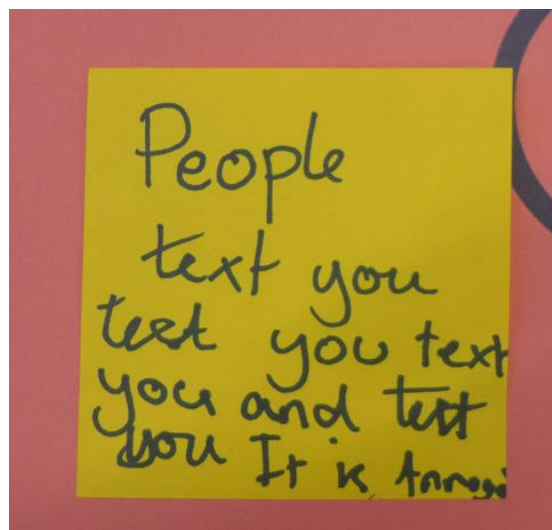 People
text you
text you text
you and text
you It is